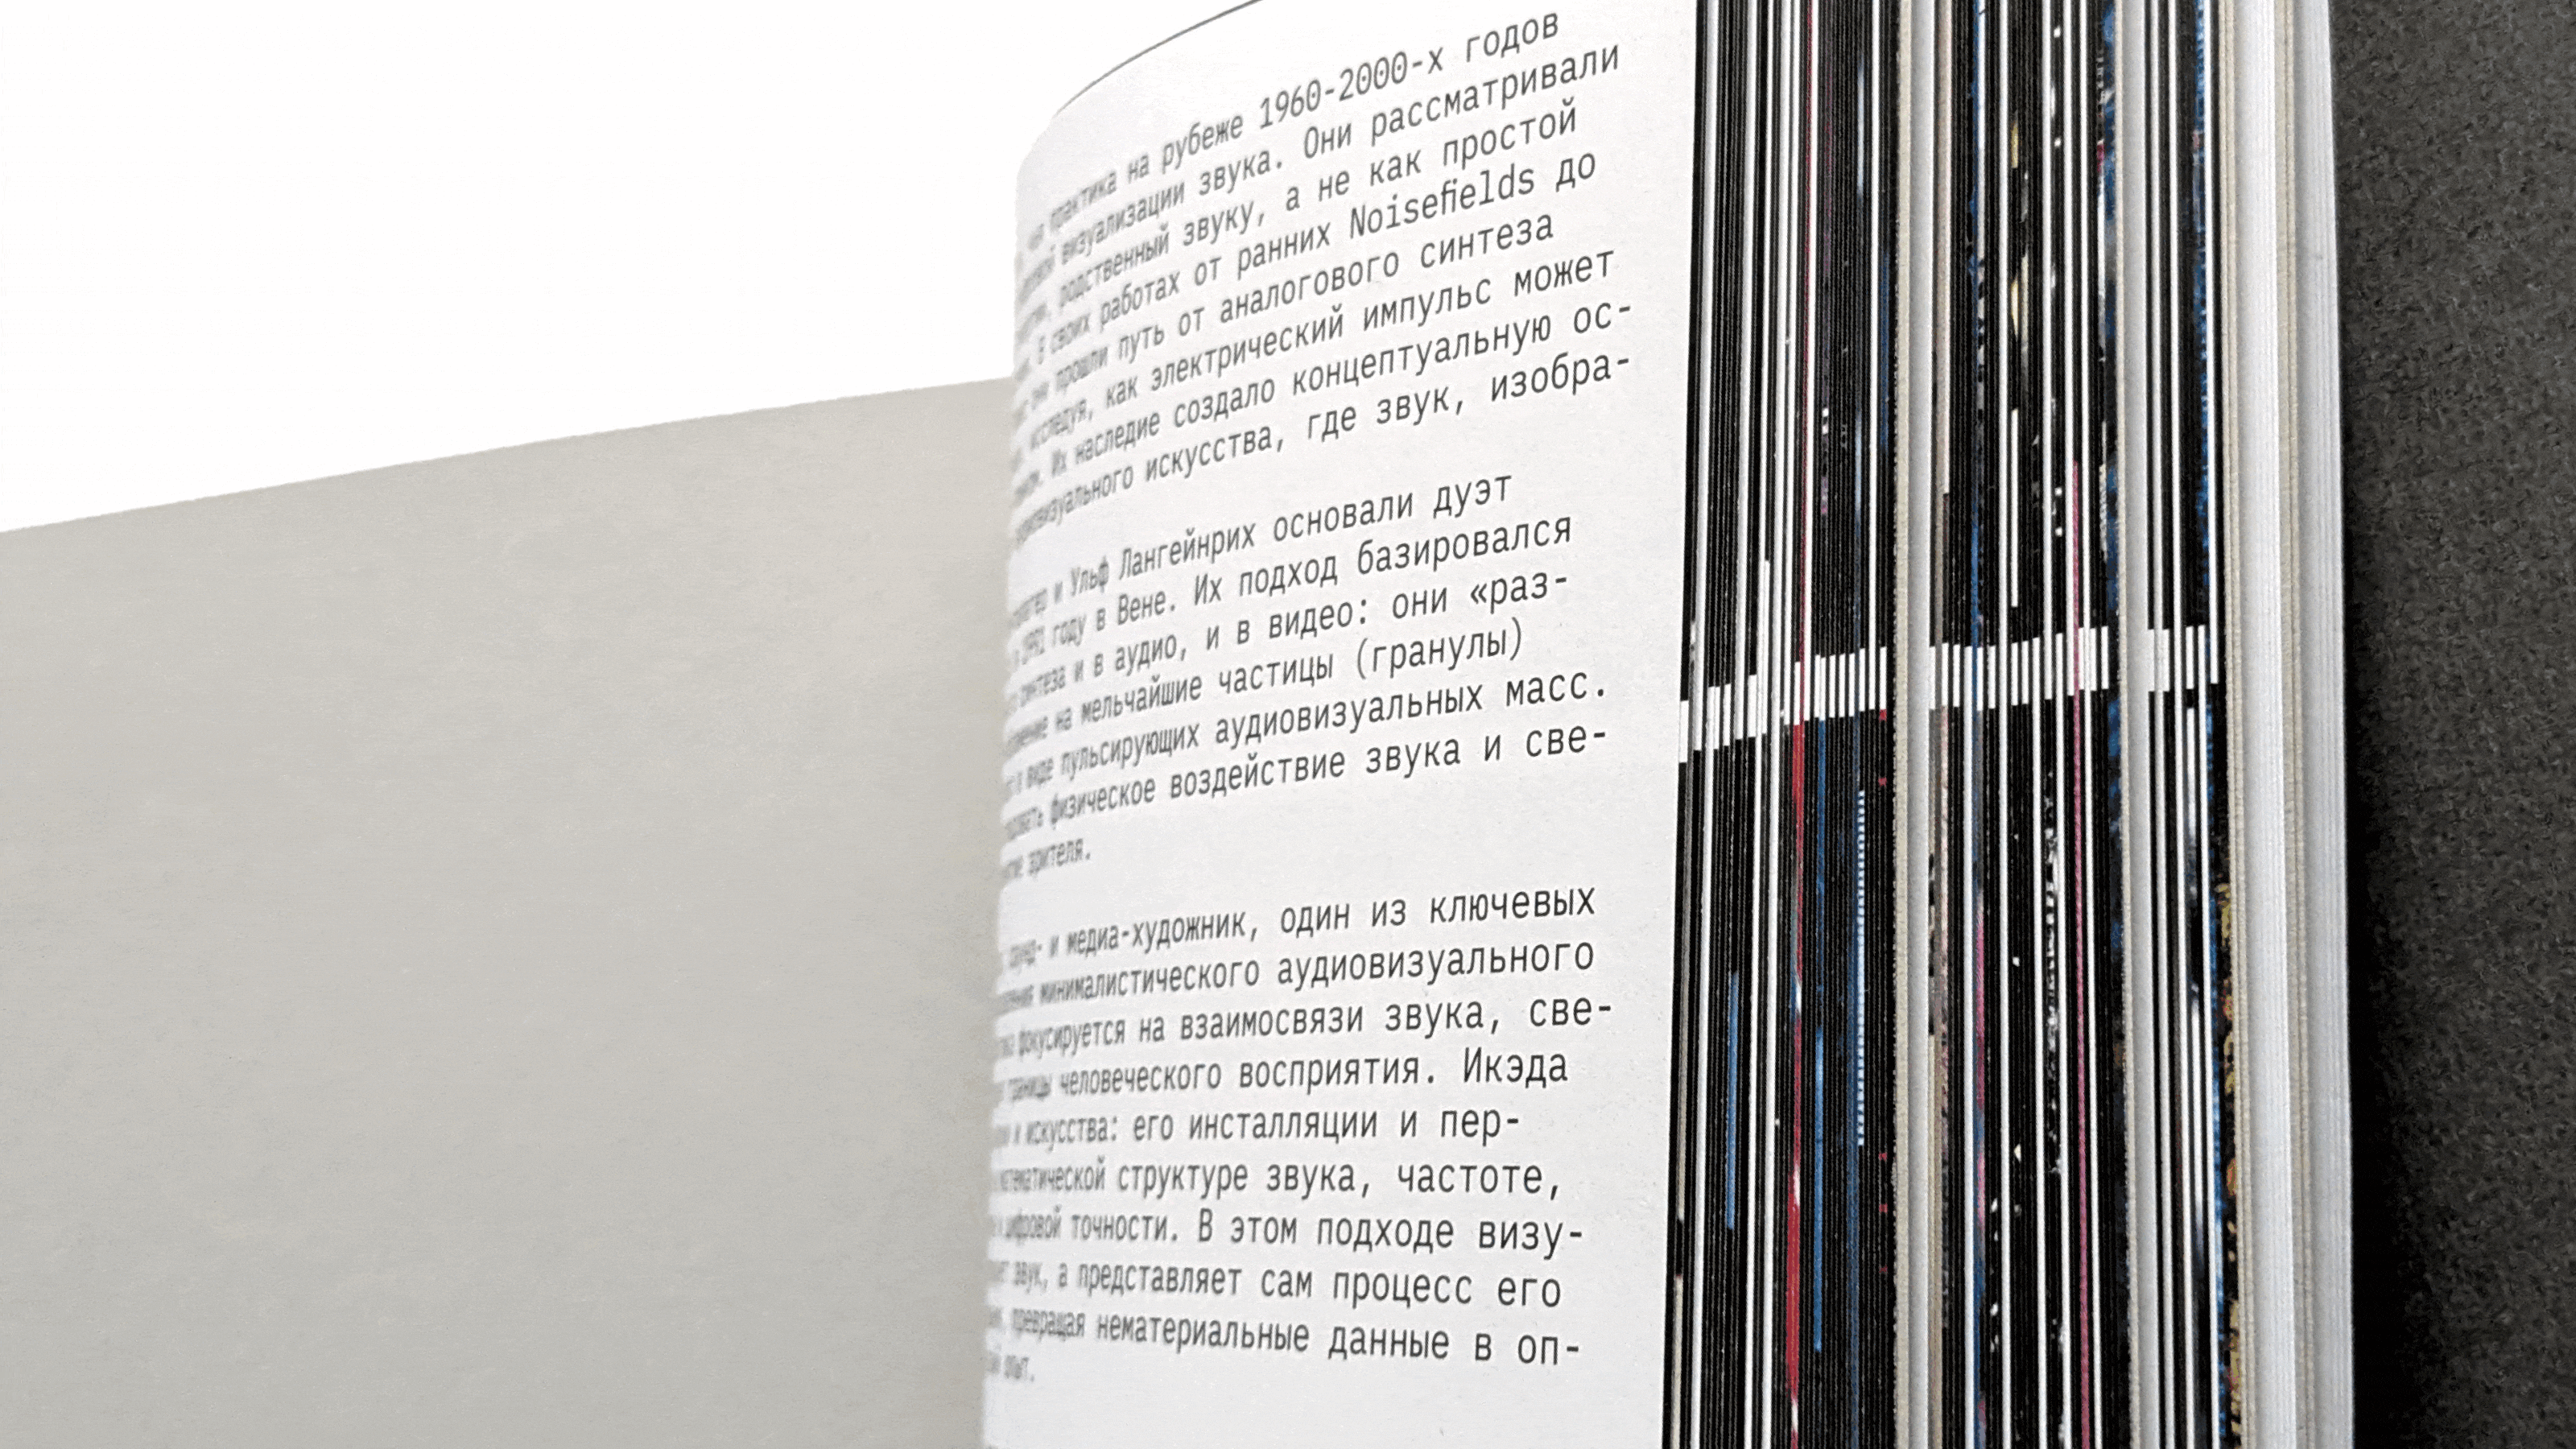 практика на рубеже 1960-2000-х годов
визуализации звука. Они рассматривали
родственный звуку, а не как простой
В своих работах от ранних Noisefields до
они прошли путь от аналогового синтеза
исследуя, как электрический импульс может
Их наследие создало концептуальную ос-
искусства, где звук, изобра-
и Ульф Лангейнрих основали дуэт
в 1991 году в Вене. Их подход базировался
синтеза и в аудио, и в видео: они «раз-
на мельчайшие частицы (гранулы)
в виде пульсирующих аудиовизуальных масс.
физическое воздействие звука и све-
зрителя.
и медиа-художник, один из ключевых
минималистического аудиовизуального
фокусируется на взаимосвязи звука, све-
границы человеческого восприятия. Икэда
и искусства: его инсталляции и пер-
математической структуре звука, частоте,
и цифровой точности. В этом подходе визу-
звук, а представляет сам процесс его
превращая нематериальные данные в оп-
опыт.